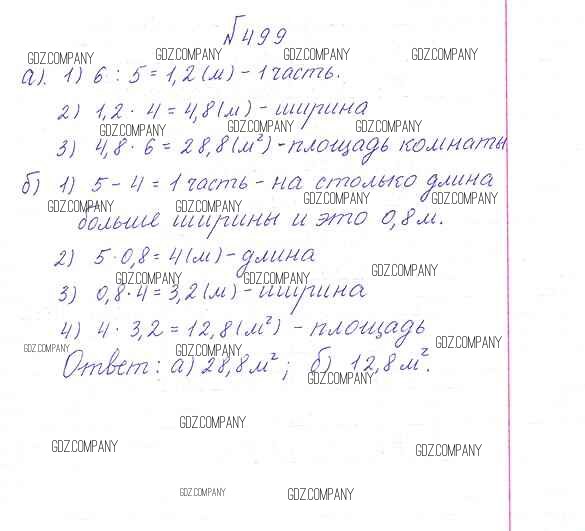 №499
GDZ.COMPANY GDZ.COMPANY GDZ.COMPANY GDZ.COMPANY
а). 1) 6 : 5 = 1,2 (м) - 1 часть.
2) 1,2 · 4 = 4,8 (м) - ширина
GDZ.COMPANY GDZ.COMPANY GDZ.COMPANY
3) 4,8 · 6 = 28,8 (м²) - площадь комнаты
б) 1) 5 - 4 = 1 часть - на столько длина
GDZ.COMPANY GDZ.COMPANY GDZ.COMPANY GDZ.COMPANY
больше ширины и это 0,8 м.
2) 5 · 0,8 = 4 (м) - длина
GDZ.COMPANY GDZ.COMPANY GDZ.COMPANY
3) 0,8 · 4 = 3,2 (м) - ширина
4) 4 · 3,2 = 12,8 (м²) - площадь
GDZ.COMPANY GDZ.COMPANY GDZ.COMPANY
Ответ: а) 28,8 м²; б) 12,8 м².
GDZ.COMPANY
GDZ.COMPANY
GDZ.COMPANY GDZ.COMPANY
GDZ.COMPANY GDZ.COMPANY